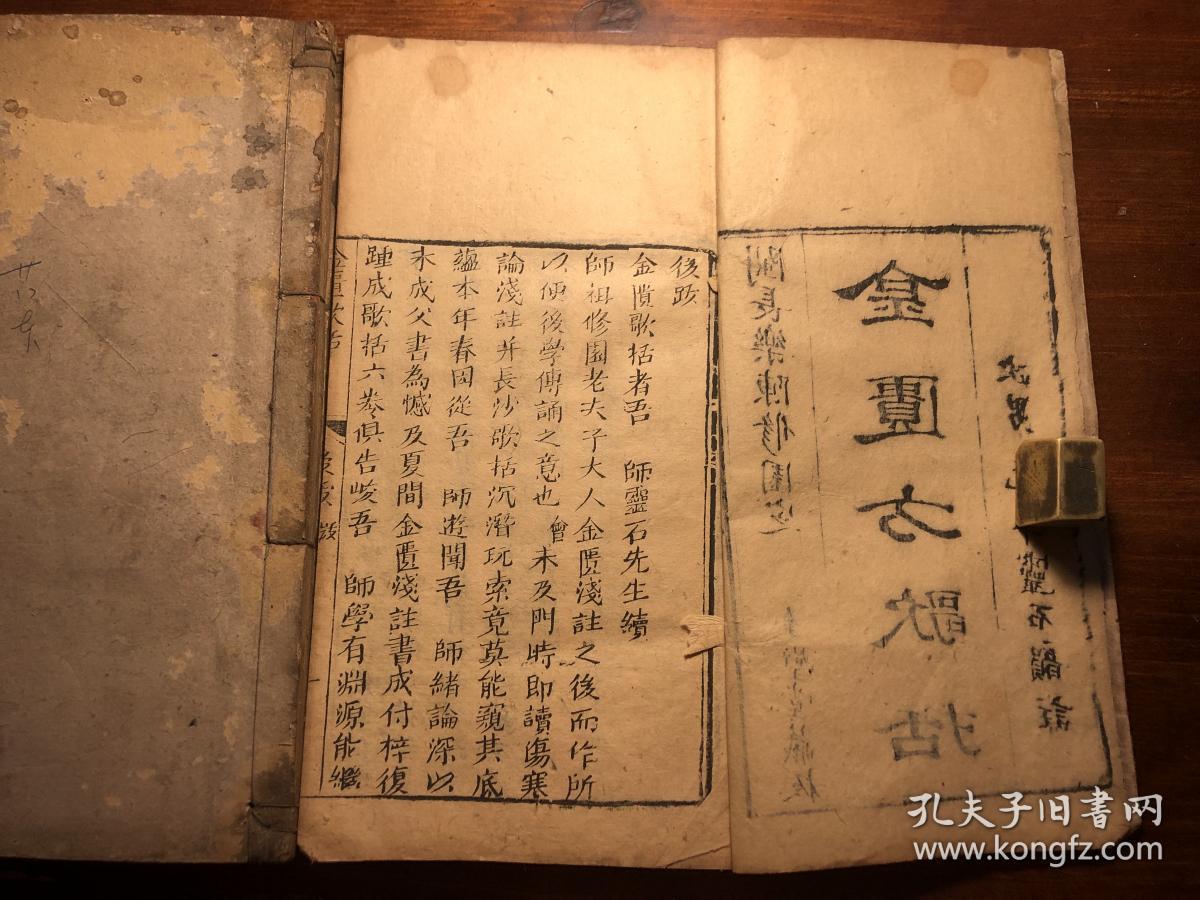 金匱方歌括
閩長樂陳修園
靈石韻註
後跋
金匱歌括者吾　師靈石先生續
師祖修園老夫子大人金匱淺註之後而作所
以便後學傳誦之意也曾未及門時即讀傷寒
論淺註并長沙歌括沉潛玩索竟莫能窺其底
蘊本年春因從吾　師遊聞吾　師緒論深以
未成父書為憾及夏間金匱淺註書成付梓復
踵成歌括六卷俱告峻吾　師學有淵源能繼
金匱歌括
後跋
一
孔夫子旧书网
www.kongfz.com